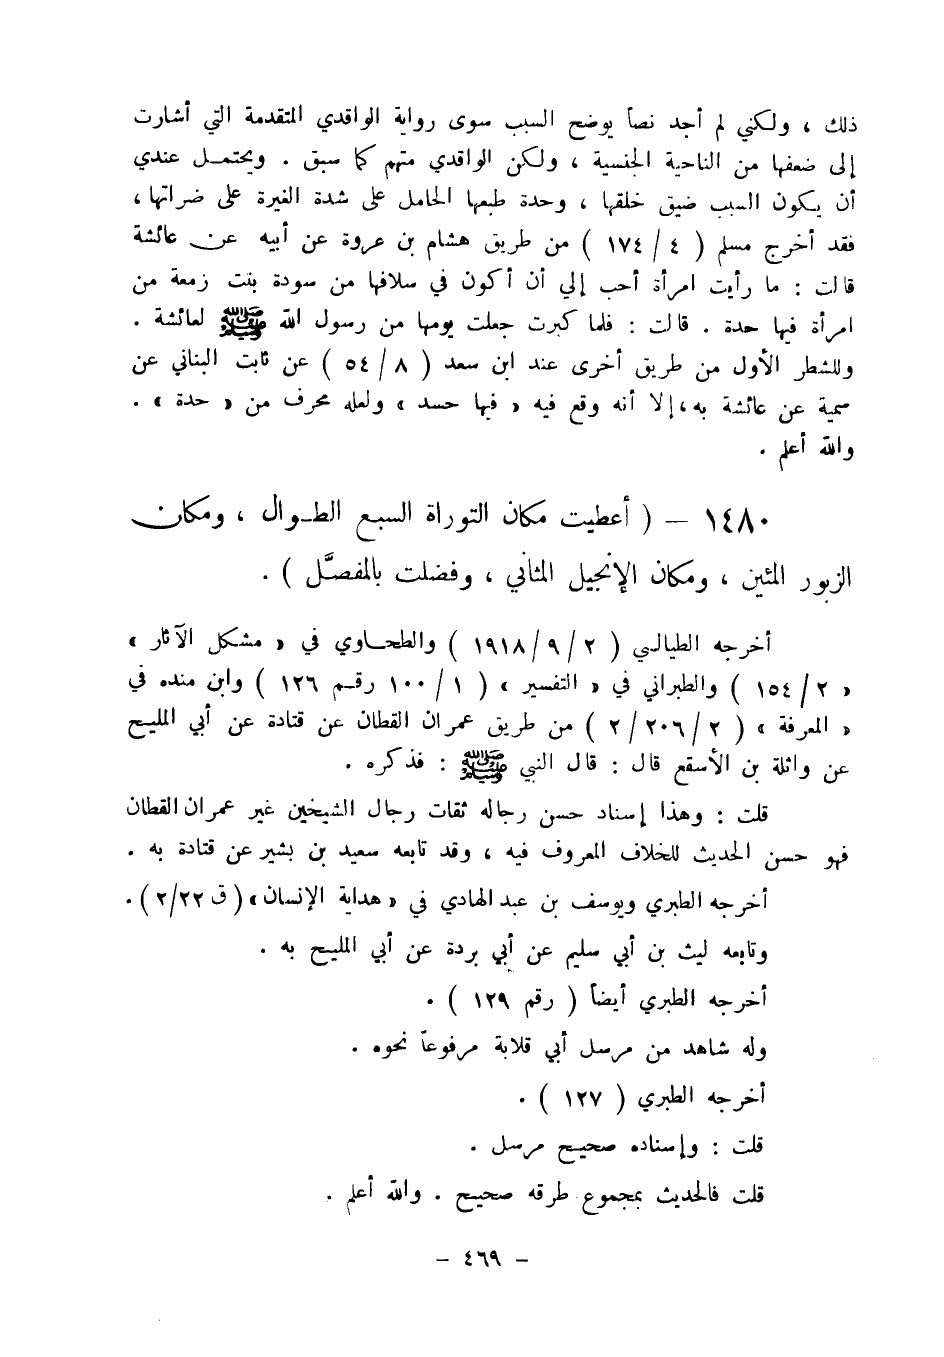 ذلك ، ولكني لم أجد نصاً يوضح السبب سوى رواية الواقدي المتقدمة التي أشارت
إلى ضعفها من الناحية الجنسية ، ولكن الواقدي متهم كما سبق . ويحتمل عندي
أن يكون السبب ضيق خلقها ، وحدة طبعها الحامل على شدة الغيرة على ضراتها ،
فقد أخرج مسلم ( ٤ / ١٧٤ ) من طريق هشام بن عروة عن أبيه عن عائشة
قالت : ما رأيت امرأة أحب إلي أن أكون في سلافها من سودة بنت زمعة من
امرأة فيها حدة . قالت : فلما كبرت جعلت يومها من رسول الله ﷺ لعائشة .
وللشطر الأول من طريق أخرى عند ابن سعد ( ٨ / ٥٤ ) عن ثابت البناني عن
سمية عن عائشة به، إلا أنه وقع فيه « فيها حسد » ولعله محرف من « حدة » .
والله أعلم .
١٤٨٠ – ( أعطيت مكان التوراة السبع الطوال ، ومكان
الزبور المئين ، ومكان الإنجيل المثاني ، وفضلت بالمفصَّل ) .
أخرجه الطيالسي ( ٢ / ٩ / ١٩١٨ ) والطحاوي في « مشكل الآثار »
« ٢ / ١٥٤ ) والطبراني في « التفسير » ( ١ / ١٠٠ رقم ١٢٦ ) وابن منده في
« المعرفة » ( ٢ / ٢٠٦ / ٢ ) من طريق عمران القطان عن قتادة عن أبي المليح
عن واثلة بن الأسقع قال : قال النبي ﷺ : فذكره .
قلت : وهذا إسناد حسن رجاله ثقات رجال الشيخين غير عمران القطان
فهو حسن الحديث للخلاف المعروف فيه ، وقد تابعه سعيد بن بشير عن قتادة به .
أخرجه الطبري ويوسف بن عبد الهادي في « هداية الإنسان » ( ق ٢٢ / ٢ ) .
وتابعه ليث بن أبي سليم عن أبي بردة عن أبي المليح به .
أخرجه الطبري أيضاً ( رقم ١٢٩ ) .
وله شاهد من مرسل أبي قلابة مرفوعاً نحوه .
أخرجه الطبري ( ١٢٧ ) .
قلت : وإسناده صحيح مرسل .
قلت فالحديث بمجموع طرقه صحيح . والله أعلم .
– ٤٦٩ –